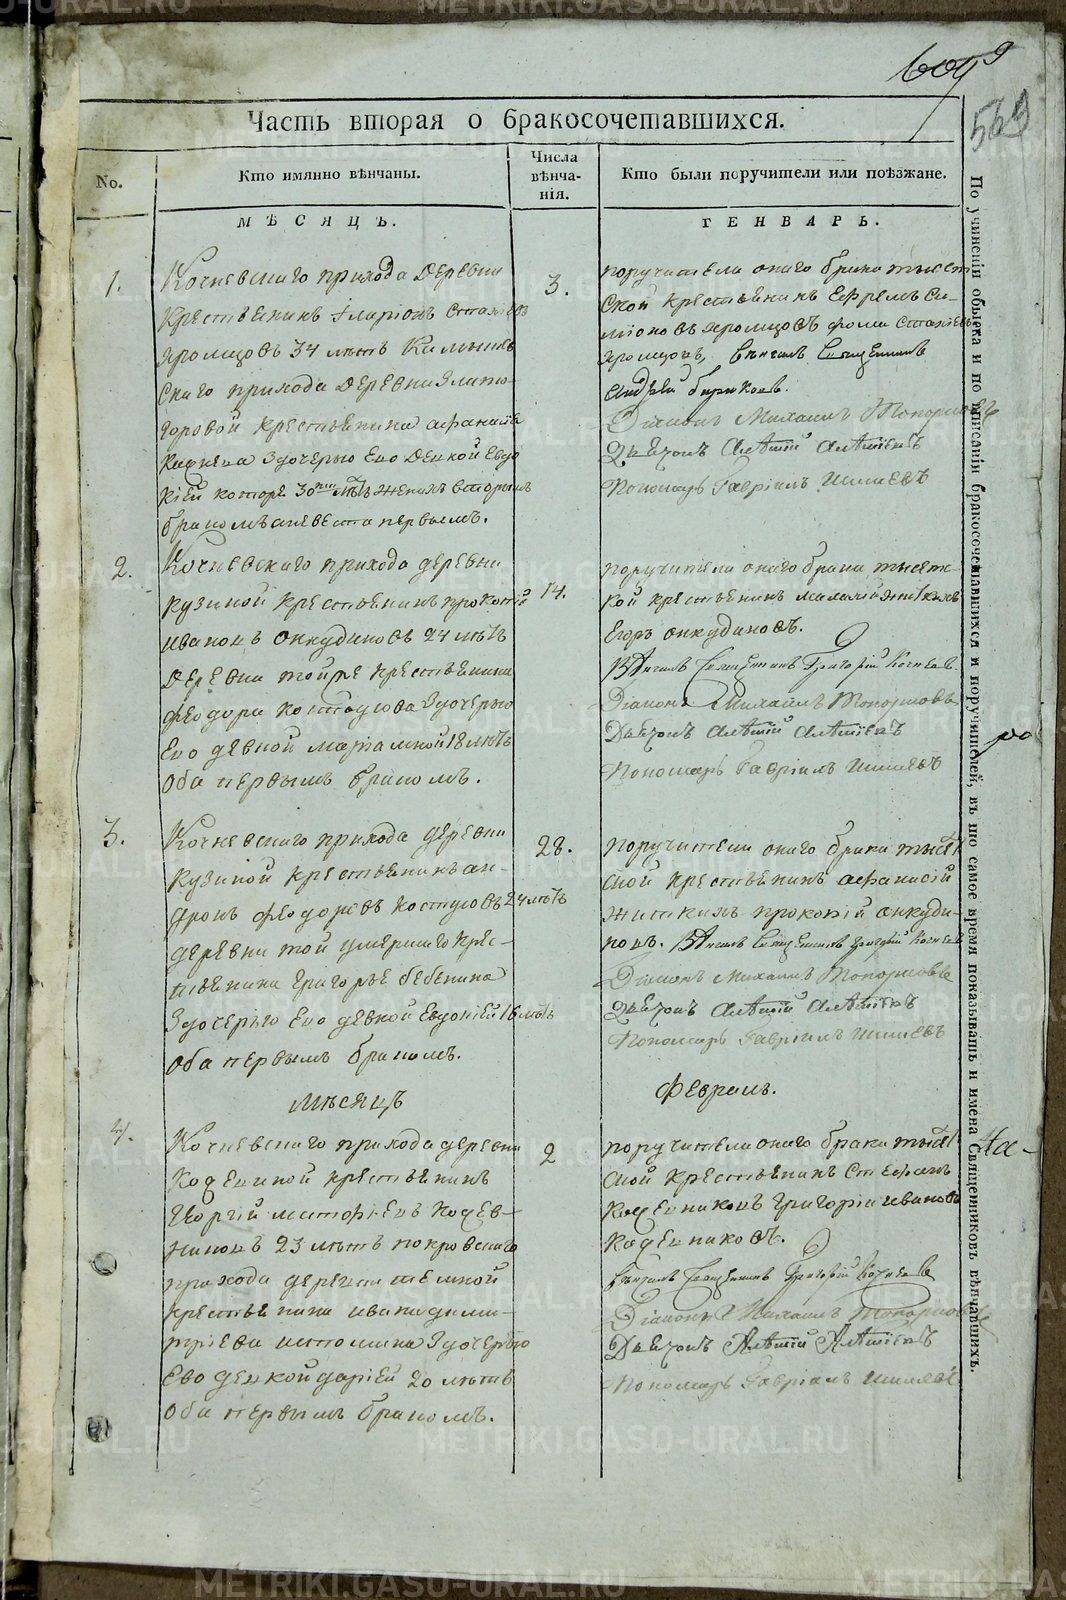 569
Часть вторая о бракосочетавшихся.
No.
Кто имянно вѣнчаны.
Числа вѣнча-нія.
Кто были поручители или поѣзжане.
МѢСЯЦЪ.
ГЕНВАРЬ.
1.
Кочневскаго прихода деревни
крестьенинъ Іларіонъ
34 лѣтъ
скаго прихода деревни
крестьенина
Здочерью Ево девкой Евдо
кіей 30 лѣтъ женихъ вторымъ
бракомъ а невеста первымъ.
3.
поручители онаго брака тысет
ской крестьенинъ Ефремъ Си-
фома
венчалъ Священникъ
Андрей Бирюковъ.
Діаконъ Михаилъ Топорковъ
Дьячокъ Алѣѯій Алѣѯіевъ
Пономарь Гавріилъ Шишевъ
2.
Кочневскаго прихода деревни
кузиной крестьенинъ прокопій
ивановъ онкудиновъ 24 лѣтъ
деревни тойже крестьенина
феодора костоусова Здочерью
Ево девкой маріамной 18 лѣтъ
Оба первымъ бракомъ.
14.
поручители онаго брака тысет-
кой крестьенинъ
Егоръ онкудиновъ.
Вѣнчалъ Священникъ Григорій Кочневъ
Діаконъ Михаилъ Топорковъ
Дьячокъ Алѣѯій Алѣѯіевъ
Пономарь Гавріилъ Шишевъ
3.
Кочневскаго прихода деревни
Кузиной крестьенинъ ан-
дронъ феодоревъ костоусовъ 24 лѣтъ
деревни той умершего крес-
тьенина Григорье бебенина
Здочерью Ево девкой Евдокіей 16 лѣтъ
Оба первымъ бракомъ.
28.
поручители онаго брака тысет
ской крестьенинъ афанасій
житкихъ прокопій онкуди-
новъ. Вѣнчалъ Священникъ Григорій Кочневъ
Діаконъ Михаилъ Топорковъ
Дьячокъ Алѣѯій Алѣѯіевъ
Пономарь Гавріилъ Шишевъ
Мѣсяцъ
Февраль.
4.
Кочневскаго прихода деревни
Кодешной крестьенинъ
Георгій матфіевъ кодев-
никовъ 23 лѣтъ покровскаго
прихода деревни темной
крестьенина ивана дими-
тріева истомина Здочерью
Ево девкой даріей 20 лѣтъ
Оба первымъ бракомъ.
2
поручители онаго брака тысет
ской крестьенинъ Стефанъ
Кодевниковъ Григорій ивановъ
Кодевниковъ.
Вѣнчалъ Священникъ Григорій Кочневъ
Діаконъ Михаилъ Топорковъ
Дьячокъ Алѣѯій Алѣѯіевъ
Пономарь Гавріилъ Шишевъ
По учиненіи обыска и по писаніи бракосочетавшихся и поручителей, въ то самое время показывать и имена Священниковъ вѣнчавшихъ.
METRIKI.GASO-URAL.RU